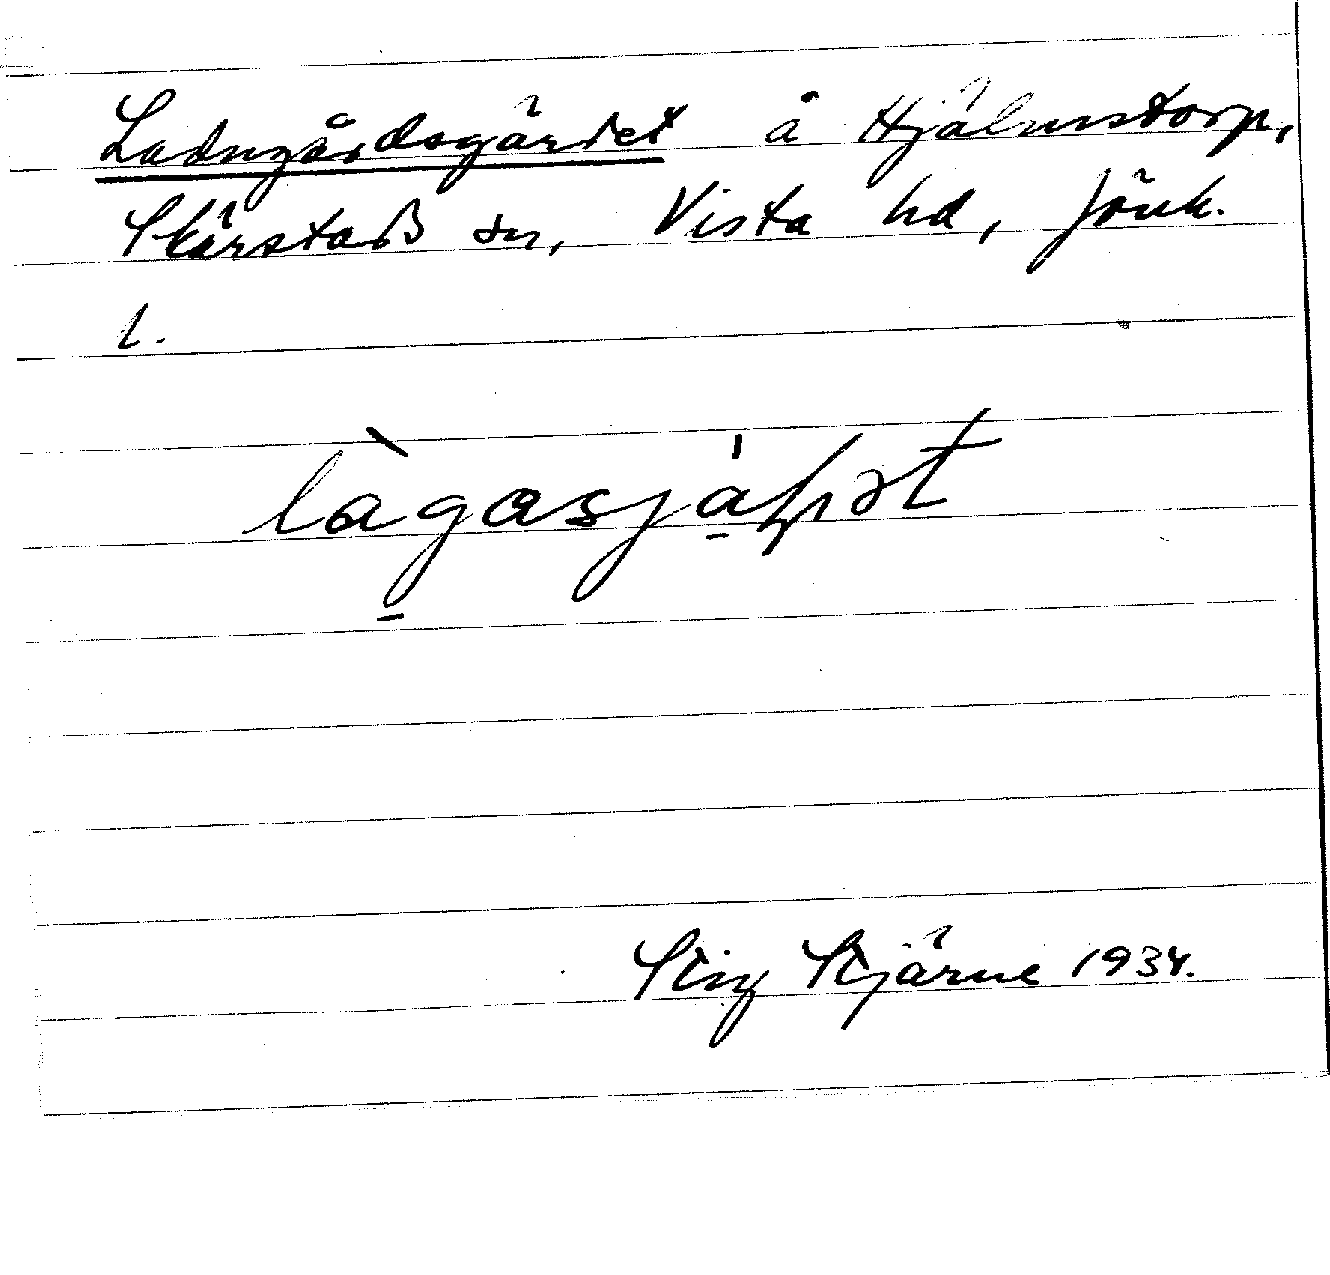 Ladugårdsgärdet å Hjälmstorp,
Skärstads sn, Vista hd, Jönk.
l.
Stig Stjärne 1934.